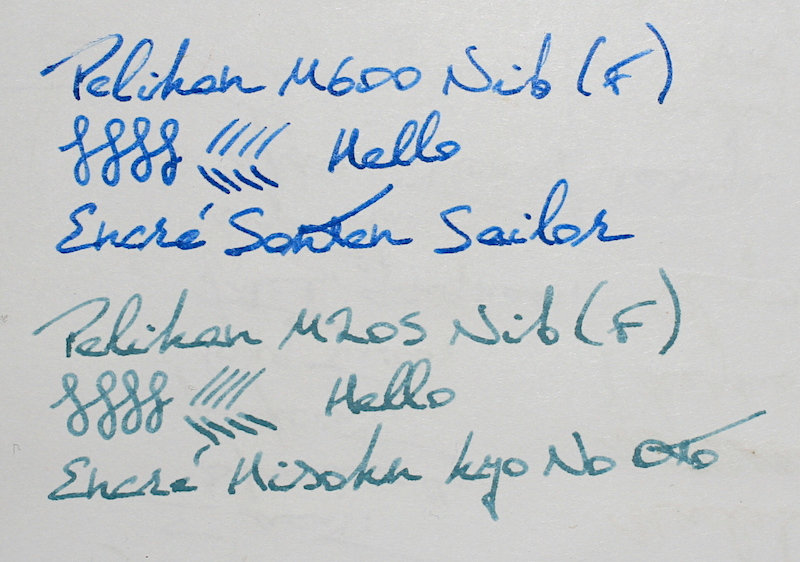 Pelikan M600 Nib (F)
Hello
Encré Souten Sailor
Pelikan M205 Nib (F)
Hello
Encré Hisoku Kyo No Oto